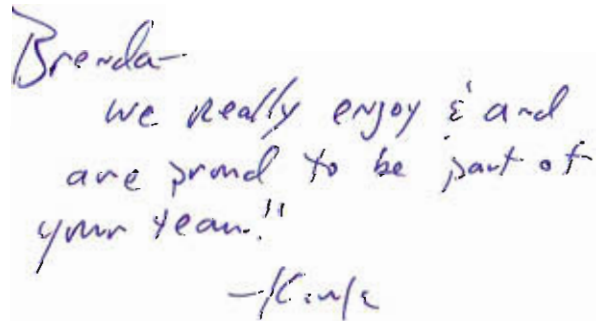 Brenda—
we really enjoy & and
are proud to be part of
your team!!